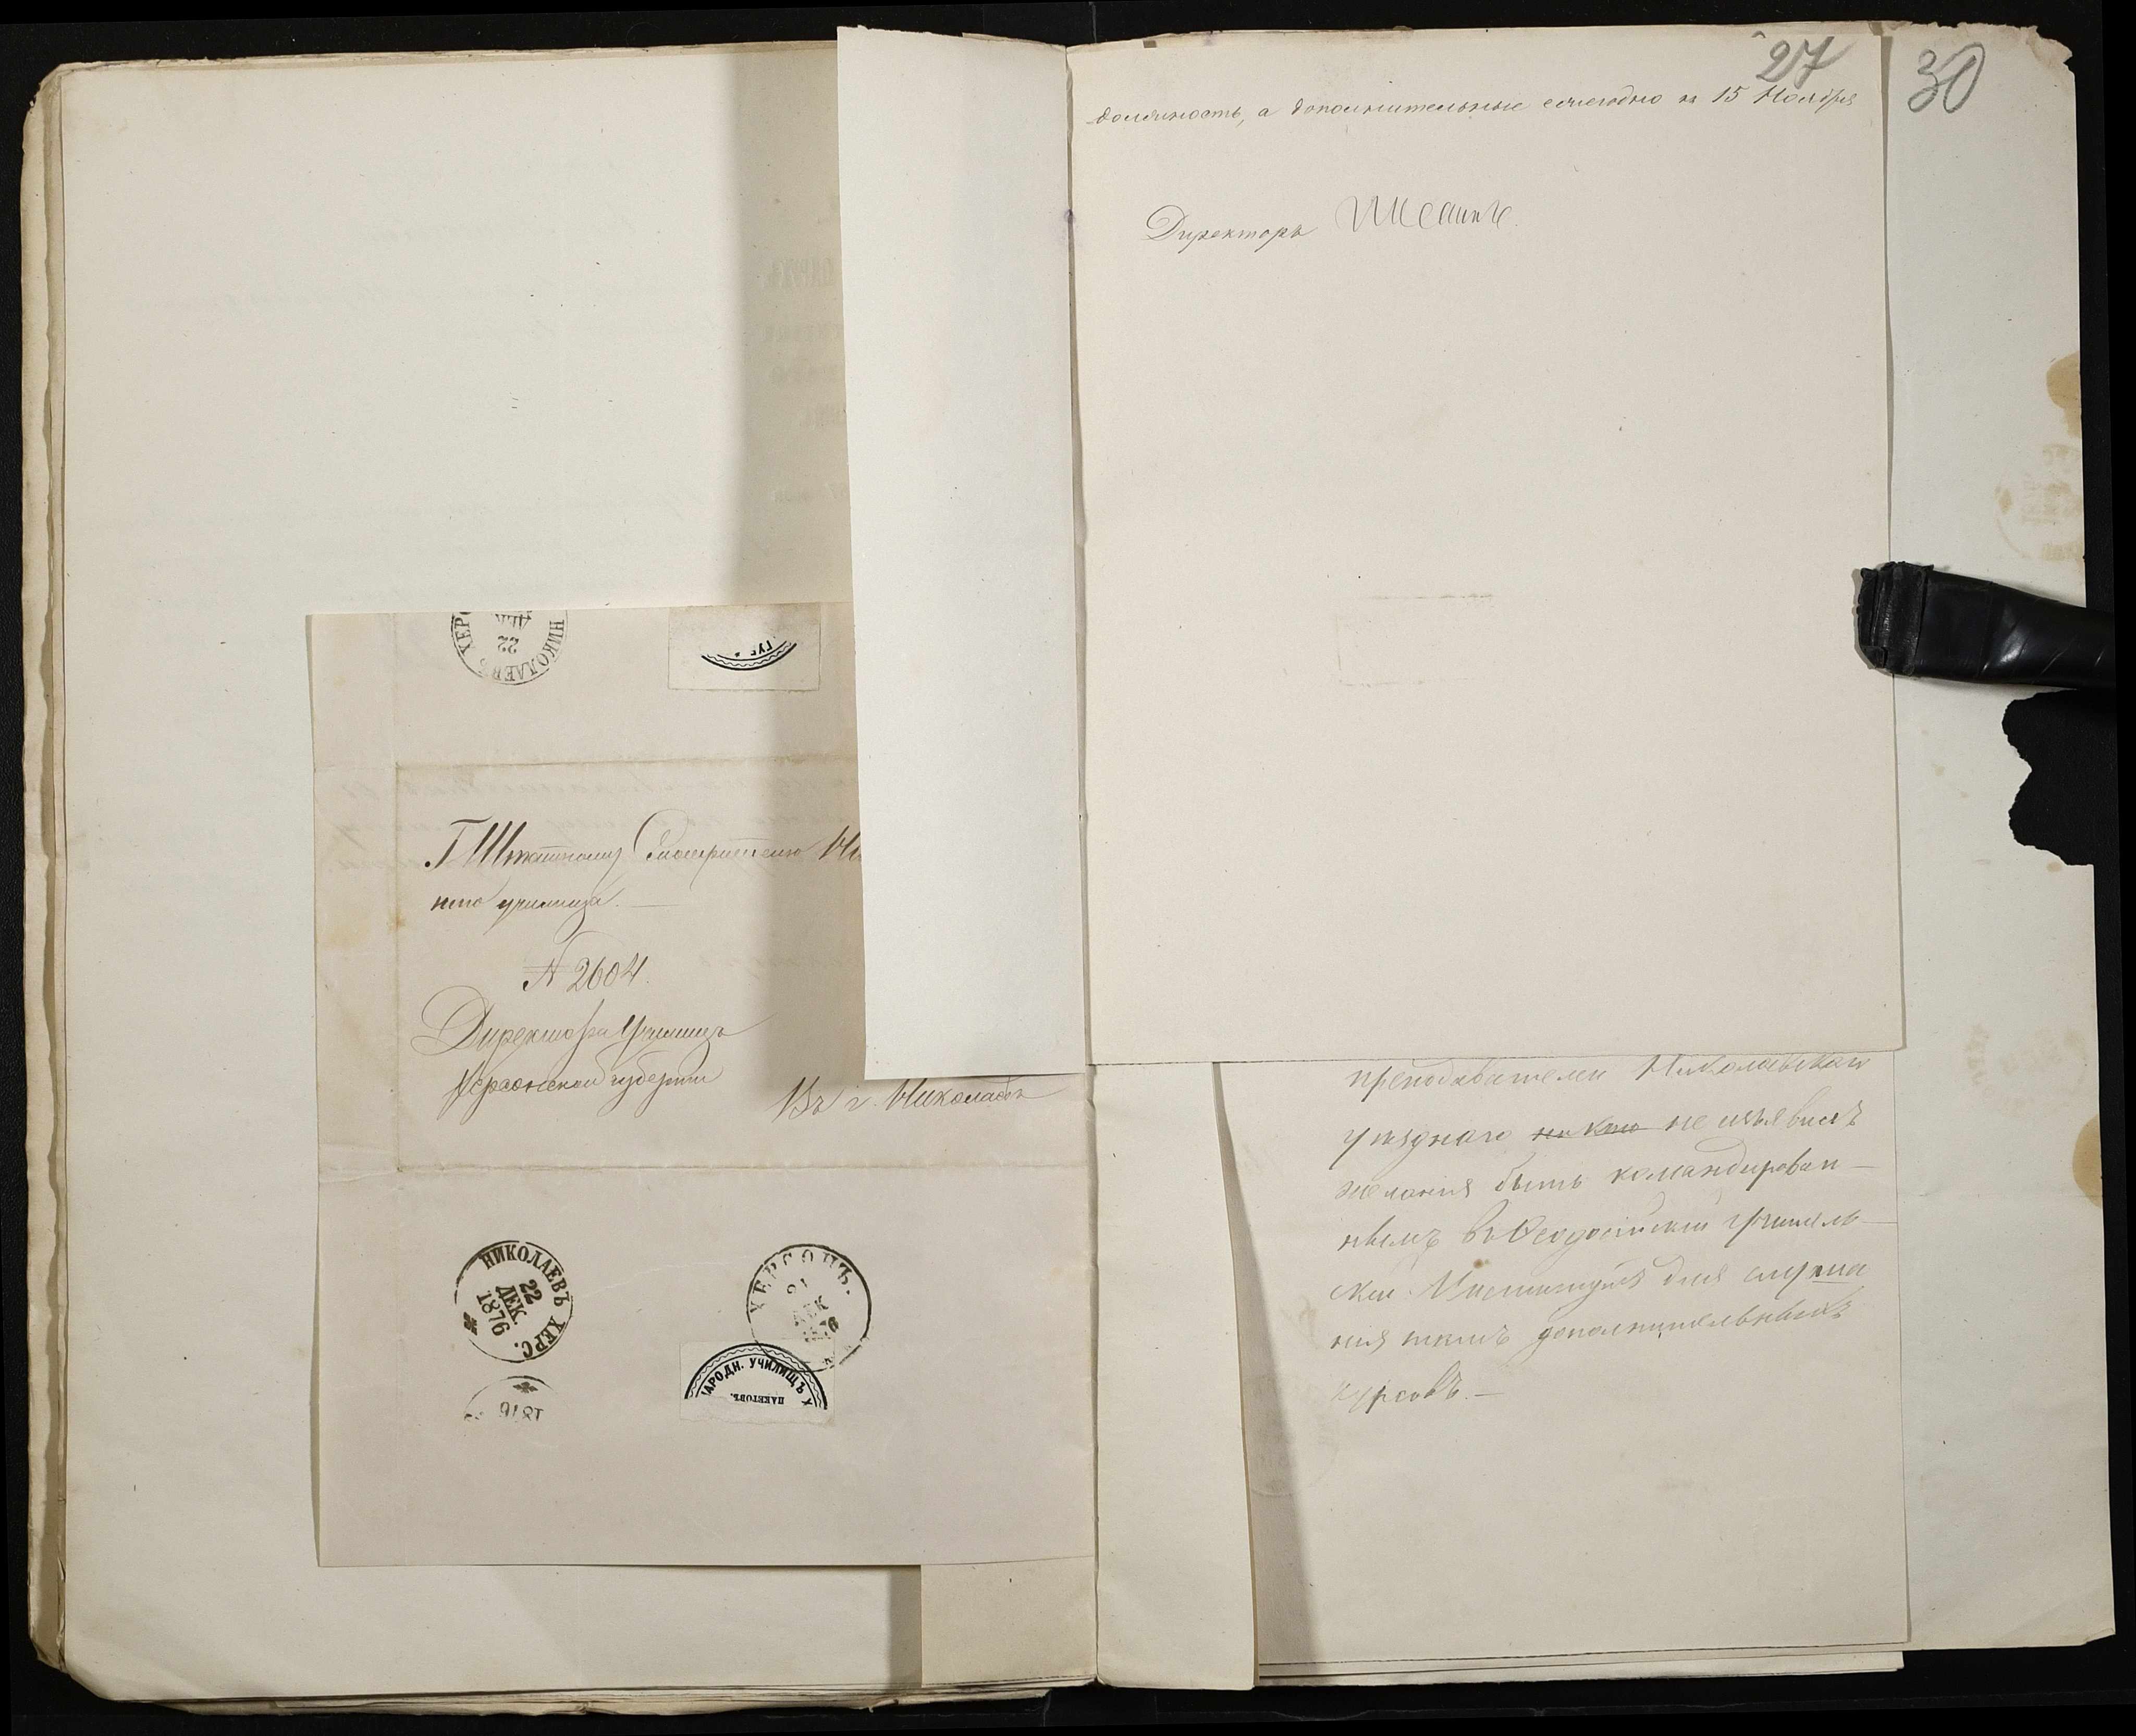 27
30
должность, а дополнительные ежегодно къ 15 Ноября
Директоръ
НИКОЛАЕВЪ ХЕРС.
22
ДЕК.
ГУБ
Г Штатному Смотрителю Ни
наго училища. —
№ 2604.
Директора Училищъ
Херсонской губерніи
Въ г. Николаевъ
НИКОЛАЕВЪ ХЕРС.
22
ДЕК.
1876
ХЕРСОНЪ.
1876
НАРОДН. УЧИЛИЩЪ Х
ПАКЕТОВЪ.
преподавателей Николаевскаго
уѣзднаго никто не изъявилъ
желанія быть командирован-
нымъ въ Ѳеодосійскій Учитель-
скій Институтъ для слуша
нія тамъ дополнительныхъ
курсовъ. —